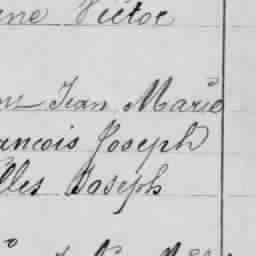 ene Victor
Jean Marie
ancois Joseph
lles Joseph